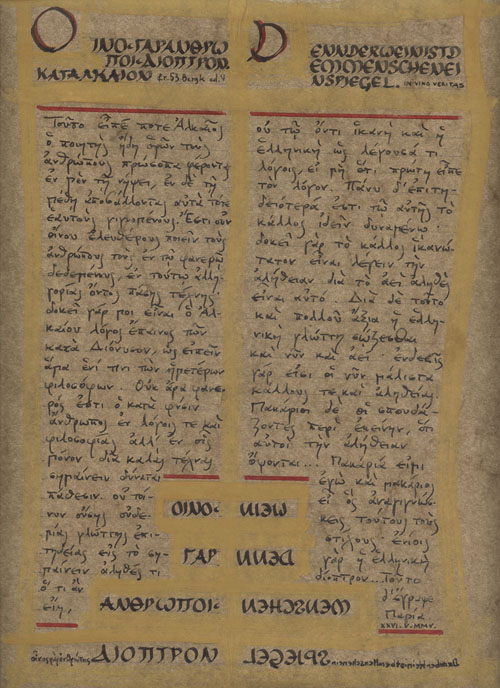 ΟΙΝΟ·ΓΑΡΑΝΘΡΩ
ΠΟΙ·ΔΙΟΠΤΡΟΝ.
ΚΑΤΑΛΚΑΙΟΝ fr.53.Bergk ed.4
DENNDERWEINISTD
EMMENSCHENEI
NSPIEGEL. IN VINO VERITAS
Τοῦτο εἶπέ ποτε Ἀλκαῖος
ὁ ποιητὴς ἤδη ὁρῶν τοὺς
ἀνθρώπους πρόσωπα φέροντας
ἐν μὲν τῇ νήψει, ἐν δὲ τῇ
μέθῃ ἀποβάλλοντας αὐτὰ
ἑαυτοὺς γιγνομένους. Ἔστι οὖν
οἴνου ἐλευθέρους ποιεῖν τοὺς
ἀνθρώπους τοὺς ἐν τῷ φανερῷ
δεδεμένους, ἐν τούτῳ ἀλλη-
γορίας ὄντος πάσης τέχνης·
δοκεῖ γάρ μοι εἶναι ὁ Ἀλ-
καίου λόγος ἔπαινος τῶν
κατὰ Διόνυσον, ὡς εἰπεῖν
ἅμα ἑνί τινι τῶν ἡμετέρων
φιλοσόφων. Οὐκ ἄρα φανε-
ρός ἐστι ὁ κατὰ φύσιν
ἄνθρωπος ἐν λόγοις τε καὶ
φιλοσοφίας ἀλλ' ἐν οἷς
μόνον διὰ καλῆς τέχνης
σημαίνειν δύναται
παθεῖν. οὐ τοί-
νυν οὔσης οὐδε-
μιᾶς γλώττης ἐπι-
τηδείας εἰς τὸ ση-
μαίνειν ἀληθές τι
ὅ τι ἂν
εἴη,
οὐ τῷ ὄντι ἱκανὴ καὶ ἡ
ἑλληνικὴ ὡς λέγουσά τι
λόγοις, εἰ μὴ ὅτι πρώτη εἶπε
τὸν λόγον. Πάνυ δ' ἐπιτη-
δειοτέρα ἐστι τῷ αὐτῆς τὸ
κάλλος ἰδεῖν δυναμένῳ·
δοκεῖ γὰρ τὸ κάλλος ἱκανώ-
τατον εἶναι λέγειν τὴν
ἀλήθειαν διὰ τὸ ἀεὶ ἀληθὲς
εἶναι αὐτό. Διὰ δὲ τοῦτο
καὶ πολλοῦ ἀξία ἡ ἑλλη-
νικὴ γλώττη σῴζεσθαι
καὶ νῦν καὶ ἀεί· ἐνδεεῖς
γάρ εἰσι οἱ νῦν μάλιστα
κάλλους τε καὶ ἀληθείας.
Μακάριοι δὲ οἱ σπουδά-
ζοντες περὶ ἐκείνην, ὅτι
αὐτοὶ τὴν ἀλήθειαν
ὄψονται... Μακαρία εἰμὶ
ἐγὼ καὶ μακάριος
εἶ ὃς ἀνεγίγνω-
σκες τούτους τοὺς
στίχους· ἐνίοις
γὰρ ἡ ἑλληνικὴ
δίοπτρον... Τοῦτο
δ' ἔγραψε
Μαρία
XXVI.V.MMV.
ΟΙΝΟ· WEIN
ΓΑΡ DENN
ΑΝΘΡΩΠΟΙ· MENSCHEN
ΔΙΟΠΤΡΟΝ SPIEGEL